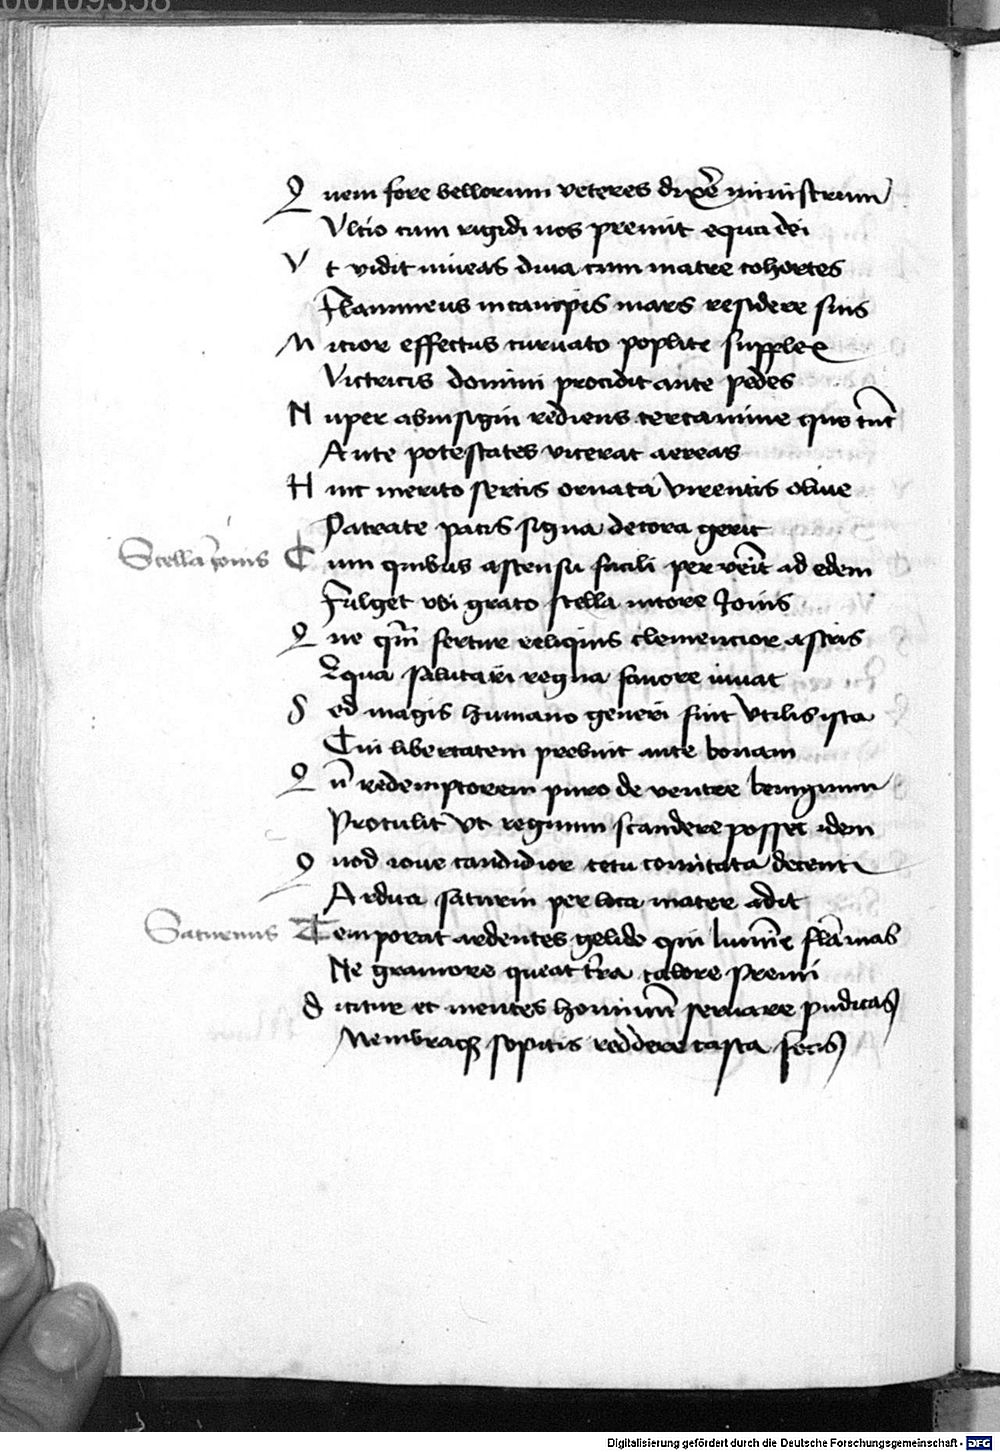 00109358
Quem fore bellorum veteres dixē ministrum
Vltio cum rigidi nos premit equa dei
Vt vidit niueas diua cum matre cohortes
Flammeus in campis mars residere suis
Micior effectus curuato poplite supplex
Victricis domini procidit ante pedes
Nuper ab insigni rediens certamine quo tūc
Ante potestates vicerat aereas
Hinc merito sertis ornata virentis oliue
Patrate pacis signa decora gerit
Stella iouis Cum quibus ascensu facili peruēit ad edem
Fulget vbi grato stella nitore Jouis
Que qm̄ fertur reliquis clemencior astris
Equa salutari regna fauore iuuat
Sed magis humano generi fuit vtilis ista
Cui libertatem prebuit ante bonam
Qn̄ redemptorem puro de ventre benignum
Protulit vt regnum scandere posset idem
Quod ioue candidior cetu comitata decenti
Ardua saturni per loca mater adit
Saturnus Temporat ardentes gelido qui lumīe flāmas
Ne grauiore queat tr̄ra calore premi
Dicitur et mentes hominū seruare pudicas
Membraq sopitis reddere casta
Digitalisierung gefördert durch die Deutsche Forschungsgemeinschaft - DFG